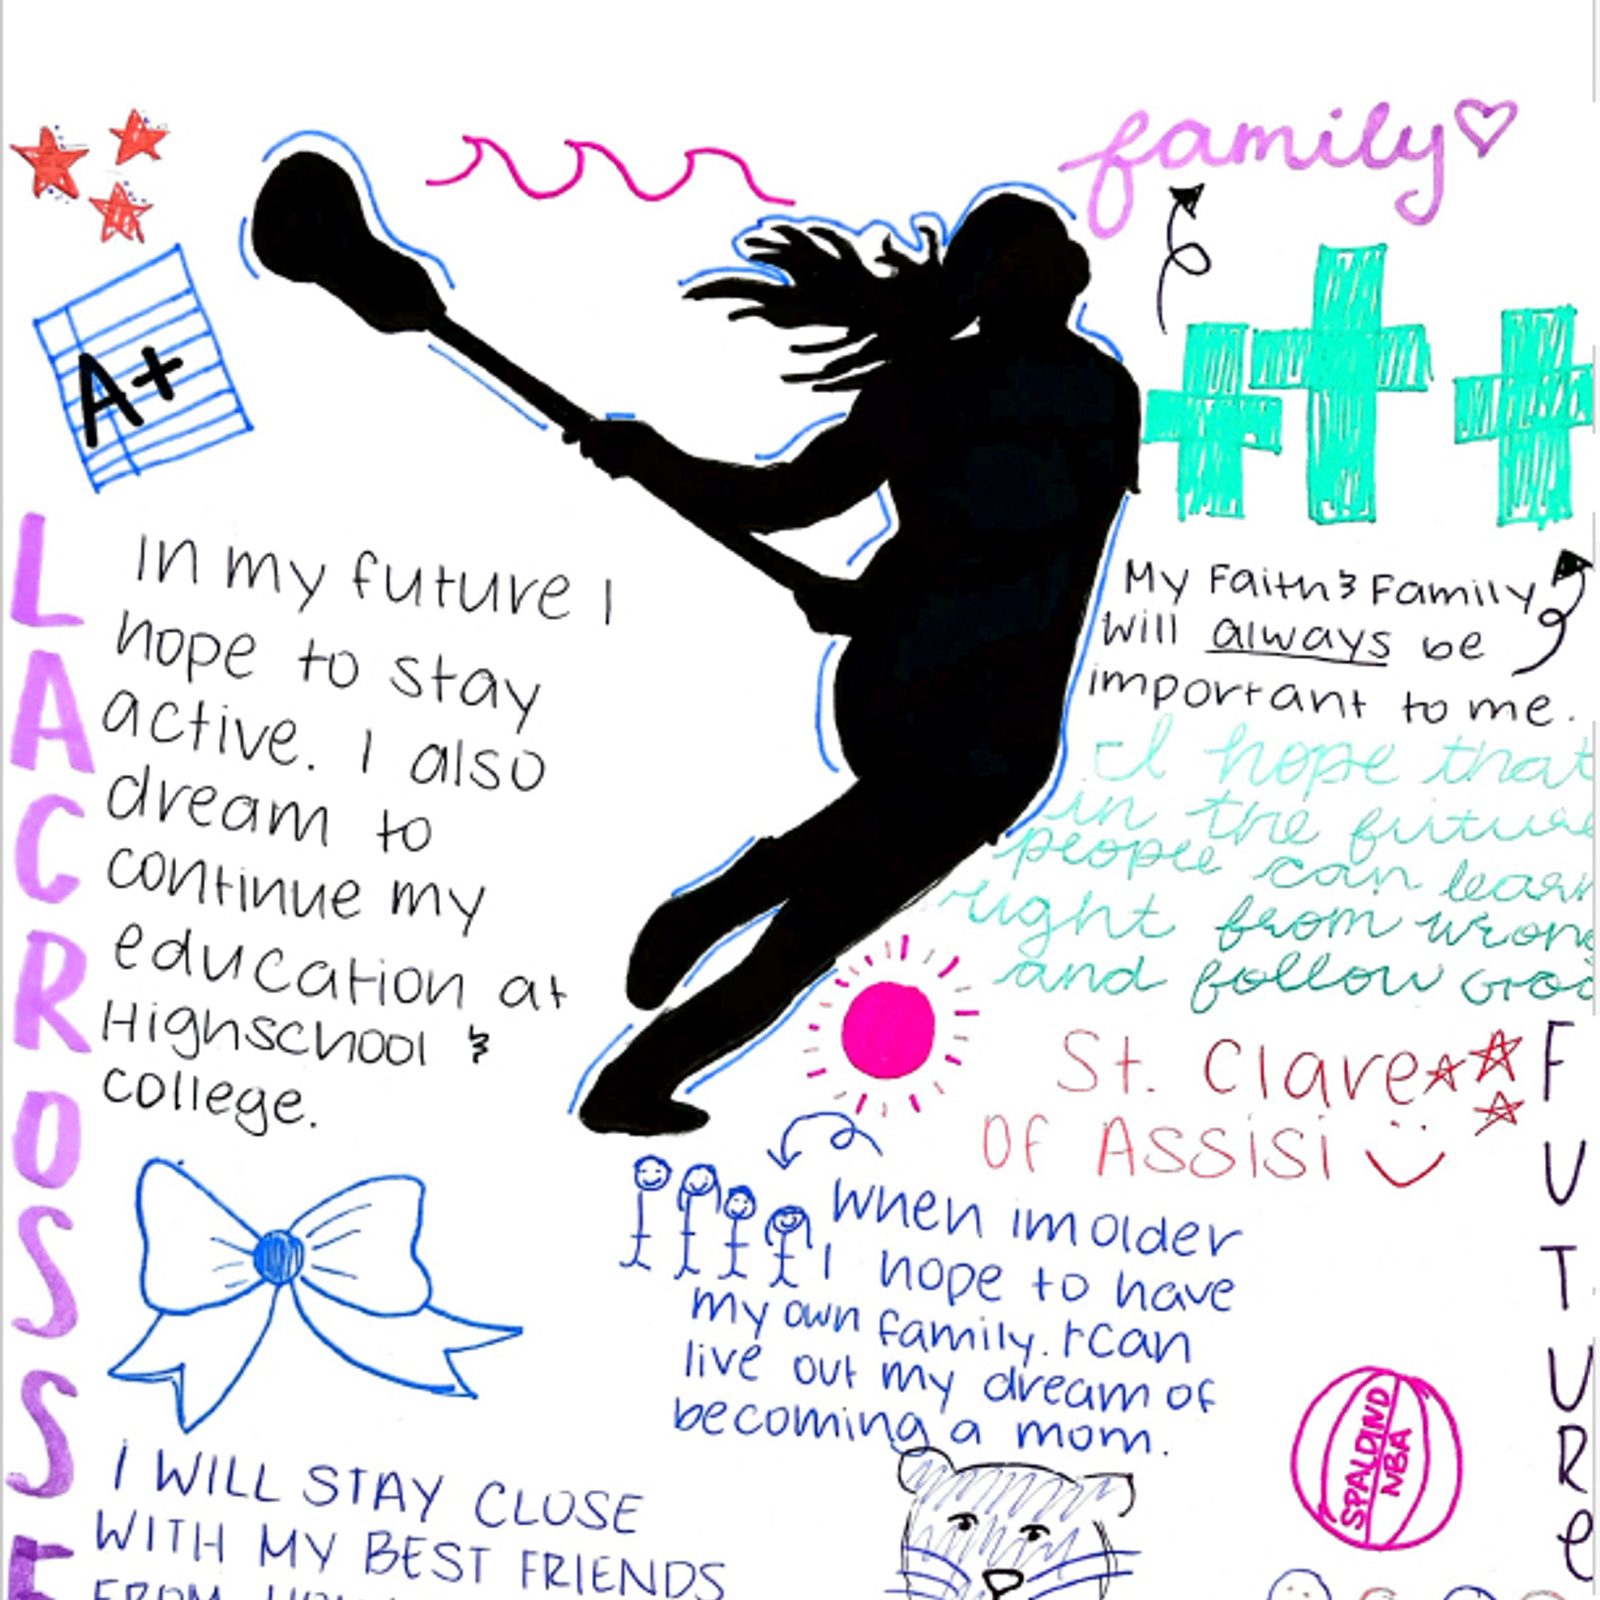 family
A+
LACROSSE
In my future I
hope to stay
active. I also
dream to
continue my
education at
Highschool &
college.
My Faith & Family
will always be
important to me.
I hope that
in the future
people can learn
right from wrong
and follow God
St. Clare
of Assisi
FUTURE
When im older
I hope to have
my own family. I can
live out my dream of
becoming a mom.
SPALDIND
NBA
I WILL STAY CLOSE
WITH MY BEST FRIENDS
FROM